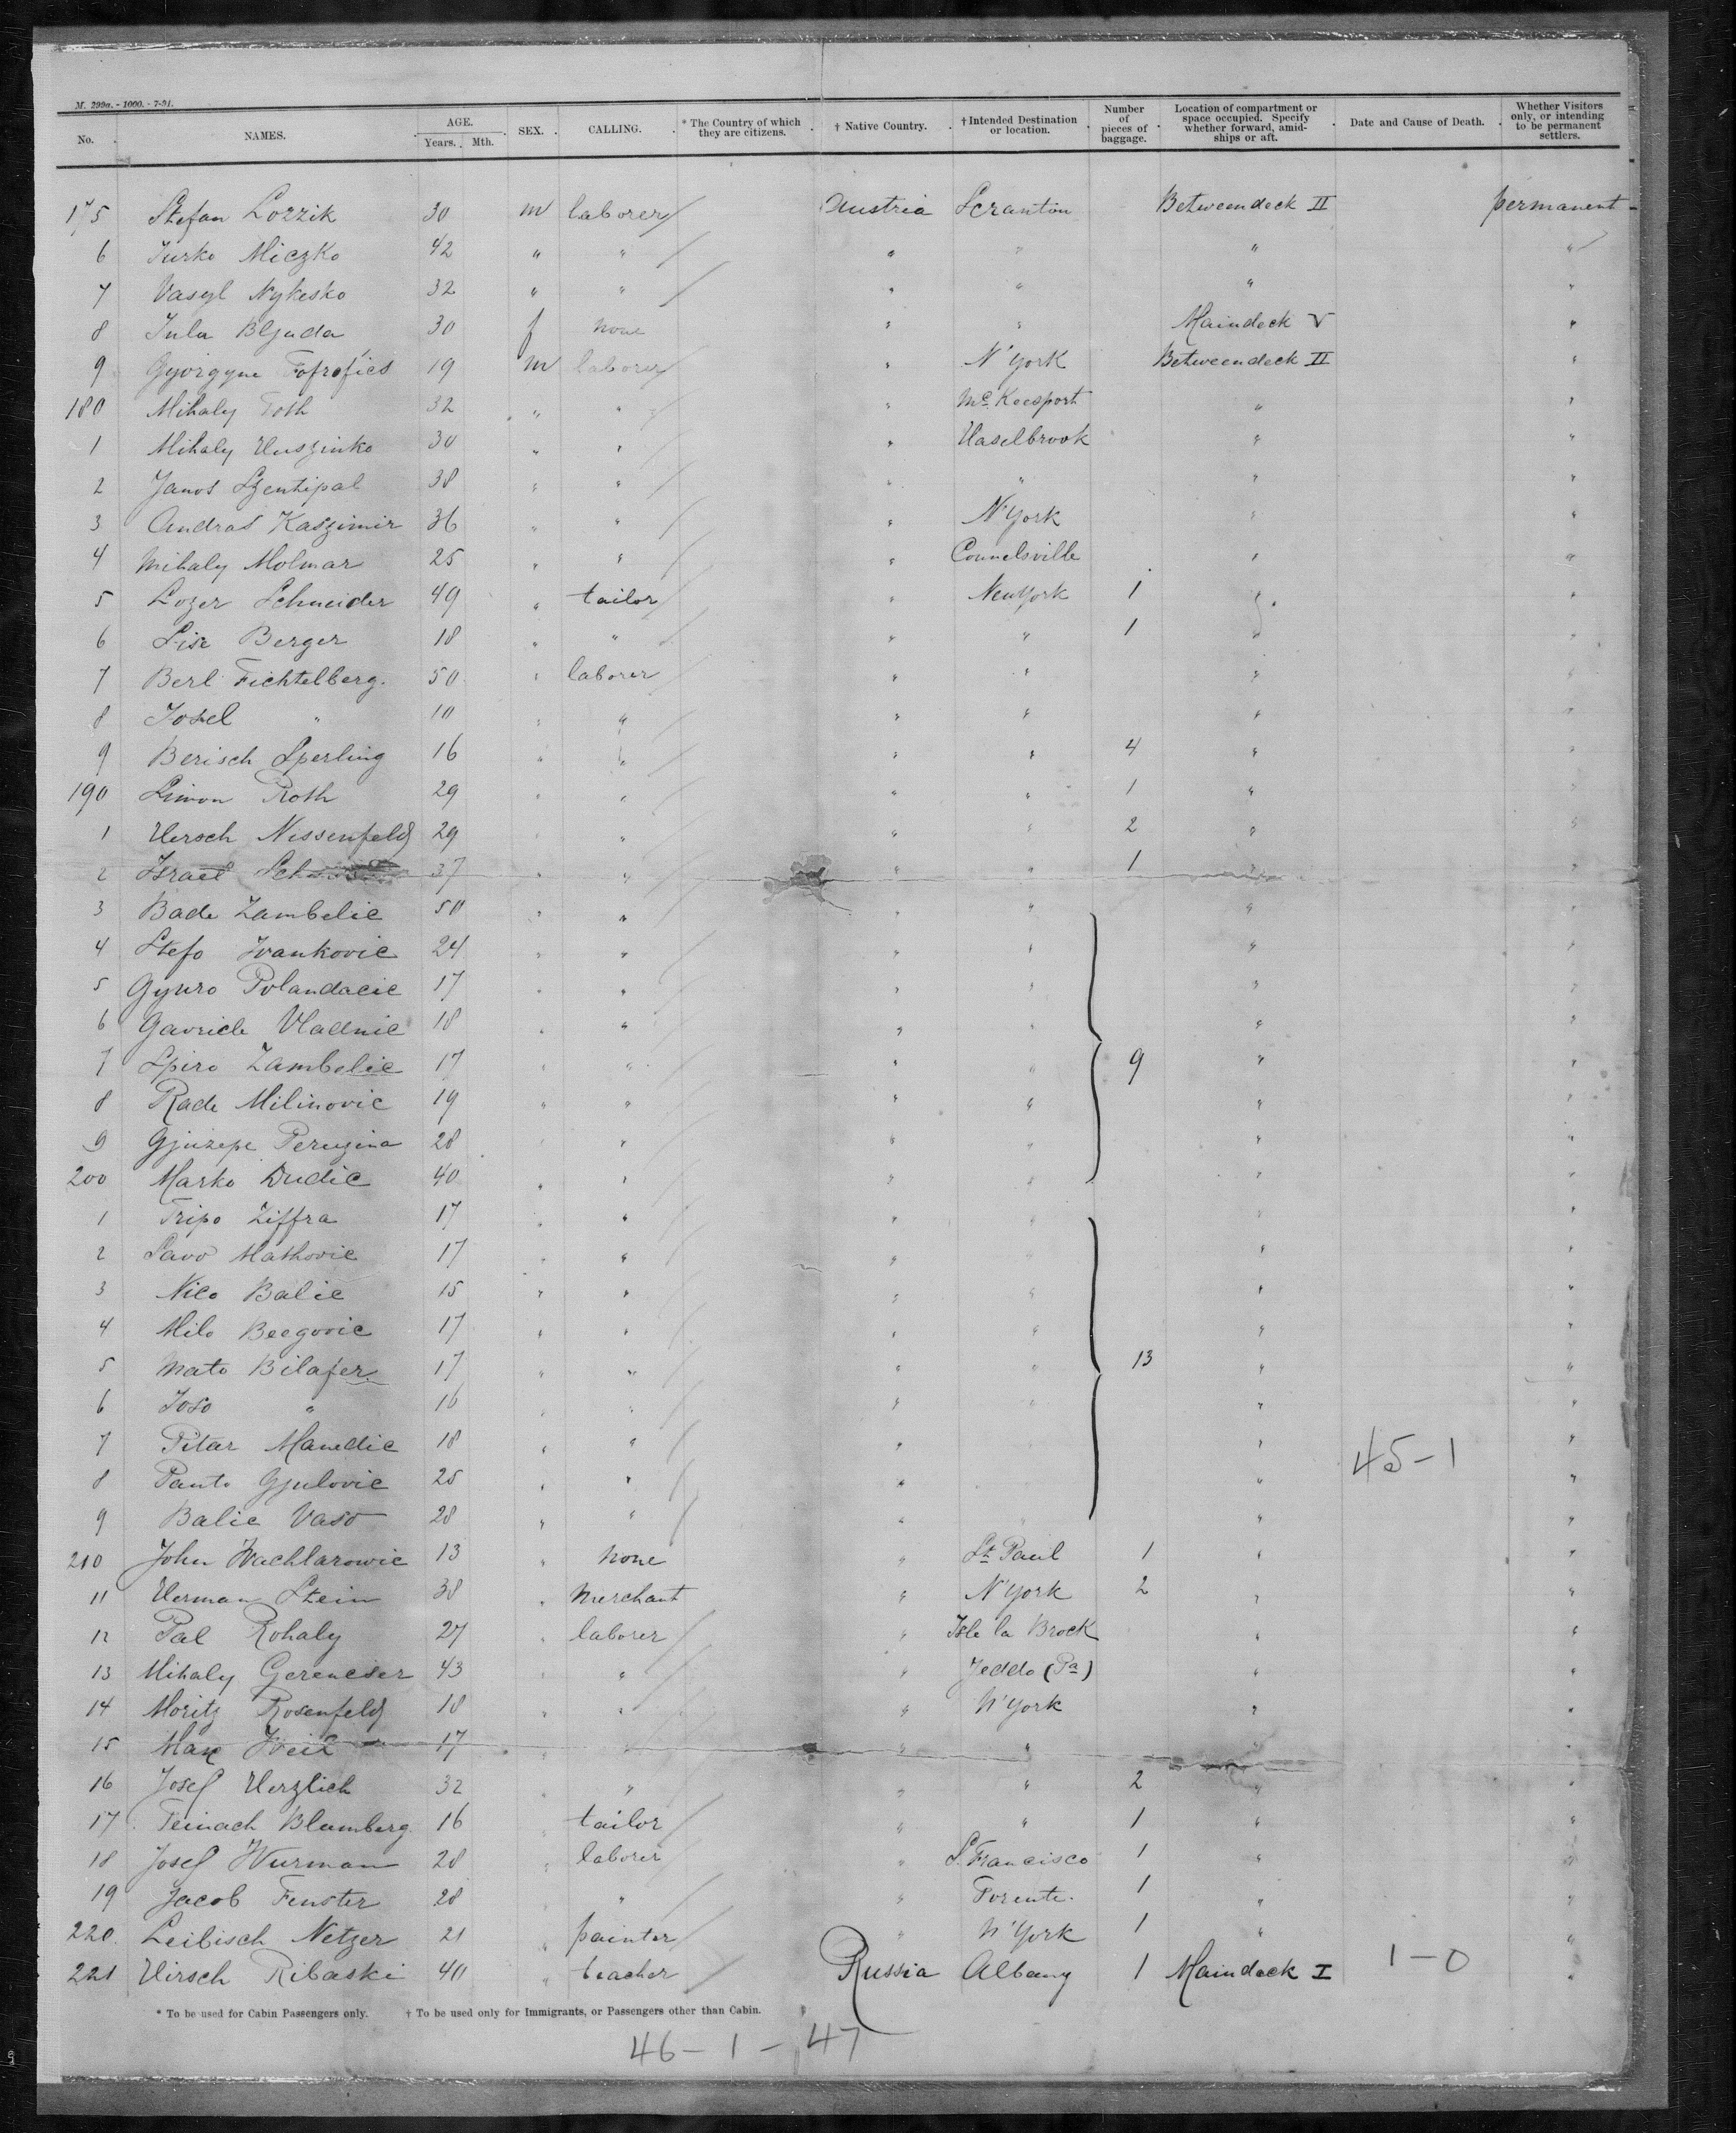 M. 299a. - 1000. - 7-91.
No. NAMES. AGE. Years. Mth. SEX. CALLING. * The Country of which they are citizens. † Native Country. † Intended Destination or location. Number of pieces of baggage. Location of compartment or space occupied. Specify whether forward, amidships or aft. Date and Cause of Death. Whether Visitors only, or intending to be permanent settlers.
175 Stefan Lozzik 30 m laborer Austria Scranton Betweendeck II permanent
6 Jurko Miczko 42 " " " " " "
7 Vasyl Nykesko 32 " " " " " "
8 Jula Bljuda 30 f none " " Maindeck V "
9 Györgyne 19 m laborer " N'York Betweendeck II "
180 Mihaly Toth 32 " " " Mc Keesport " "
1 Mihaly Huszinko 30 " " " Haselbrook " "
2 Janos Szentipal 38 " " " " " "
3 Andras Kaszimir 36 " " " N'York " "
4 Mihaly Molmar 25 " " " Connelsville " "
5 Lozer Schneider 49 " tailor " New York 1 " "
6 Lise Berger 18 " " " " 1 " "
7 Berl Fichtelberg. 50 " laborer " " " "
8 Josel " 10 " " " " " "
9 Berisch Sperling 16 " " " " 4 " "
190 Simon Roth 29 " " " " 1 " "
1 Hersch Nissenfeld 29 " " " " 2 " "
2 Israel 37 " " " " 1 " "
3 Bade Zambelic 50 " " " " " "
4 Stefo Ivankovic 24 " " " " " "
5 Gyuro Polandacic 17 " " " " " "
6 Gavriele Vladnic 18 " " " " " "
7 Spiro Zambelic 17 " " " " 9 " "
8 Rade Milinovic 19 " " " " " "
9 Gjuzepe Perugina 28 " " " " " "
200 Marko Dudic 40 " " " " " "
1 Tripo Ziffra 17 " " " " " "
2 Savo Mathovic 17 " " " " " "
3 Nico Balic 15 " " " " " "
4 Milo Beegovic 17 " " " " " "
5 Mato Bilafer 17 " " " " 13 " "
6 Joso " 16 " " " " " "
7 Pitar Manedic 18 " " " " 45-1 "
8 Panto Gjulovic 25 " " " " "
9 Balic Vaso 28 " " " " " "
210 John Wachlarowic 13 " none " St. Paul 1 " "
11 Herman Stein 38 " merchant " N'York 2 " "
12 Pal Rohaly 27 " laborer " Isle la Brock " "
13 Mihaly Gerencser 43 " " " Jeddo (Pa) " "
14 Moritz Rosenfeld 18 " " " N'York " "
15 Max Weil 17 " " " " " "
16 Josef Herzlich 32 " " " " 2 " "
17 Teinach Blumberg 16 " tailor " " 1 " "
18 Josef Wurman 28 " laborer " S. Francisco 1 " "
19 Jacob Fenster 28 " " " Torente. 1 " "
220. Leibisch Netzer 21 " painter " N'York 1 " "
221 Hirsch Ribaski 40 " teacher Russia Albany 1 Maindeck I 1-0 "
* To be used for Cabin Passengers only. † To be used only for Immigrants, or Passengers other than Cabin.
46-1-47